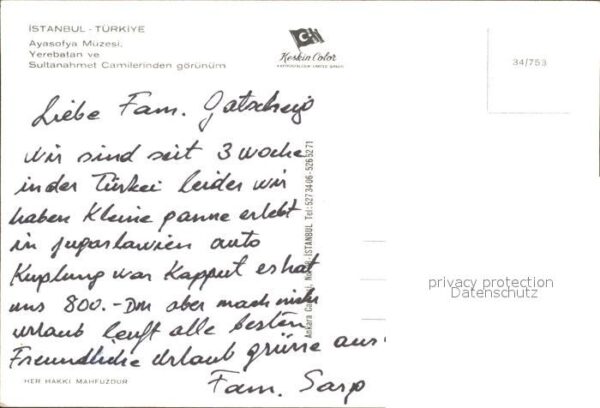 İSTANBUL - TÜRKİYE
Ayasofya Müzesi,
Yerebatan ve
Sultanahmet Camilerinden görünüm
Keskin Color
34/753
Liebe Fam.
wir sind seit 3 woche
in der Türkei leider wir
haben Kleine panne erlebt
in jugoslawien auto
Kuplung war Kapput es hat
uns 800.- Dm aber mach nicht
urlaub leuft alle besten
Freundliche Urlaub grüsse aus
Fam. Sarp
Ankara Caddesi, No: İSTANBUL Tel: 5273406-5265271
privacy protection
Datenschutz
HER HAKKI MAHFUZDUR